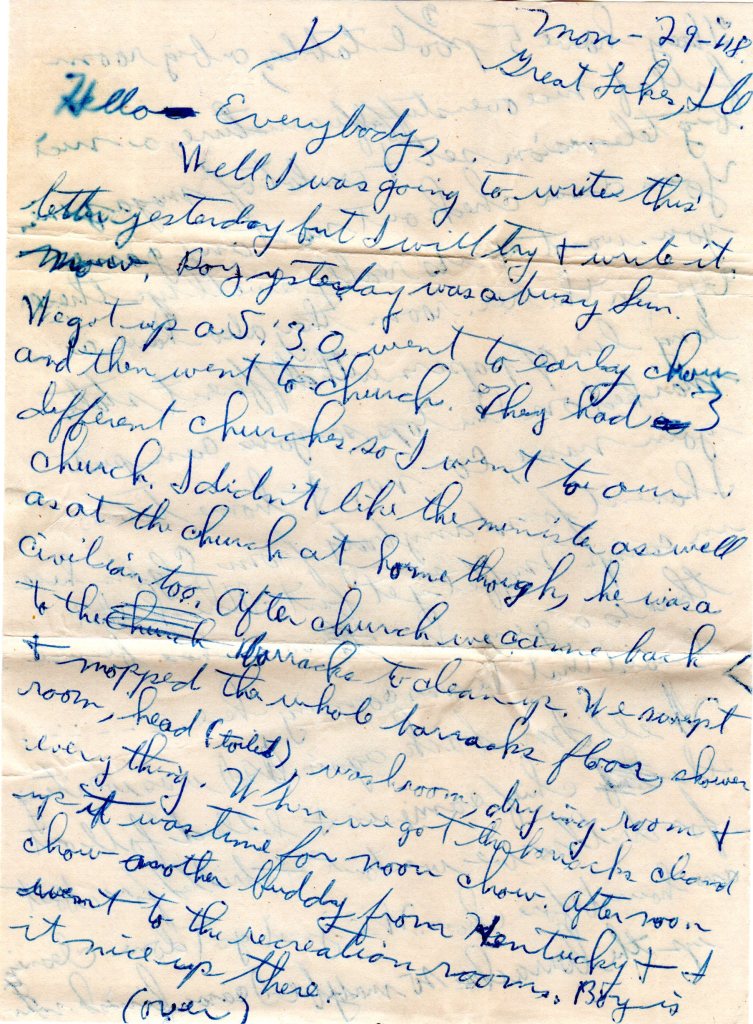 1/
Mon - 29-'48.
Great Lakes, Ill.
Hello Everybody,
Well I was going to write this
letter yesterday but I will try + write it
now. Boy yesterday was a busy Sun.
We got up a 5:30, went to early chow
and then went to church. They had 3
different churches so I went to our
church. I didn't like the minister as well
as at the church at home though, he was a
civilian too. After church we came back
to the church barracks to clean up. We swept
+ mopped the whole barracks floor, shower
room, head (toilet), washroom, drying room +
everything. When we got the barracks cleand
up it was time for noon chow. After noon
chow another buddy from Kentucky + I
went to the recreation rooms. Boy is
it nice up there.
(over)